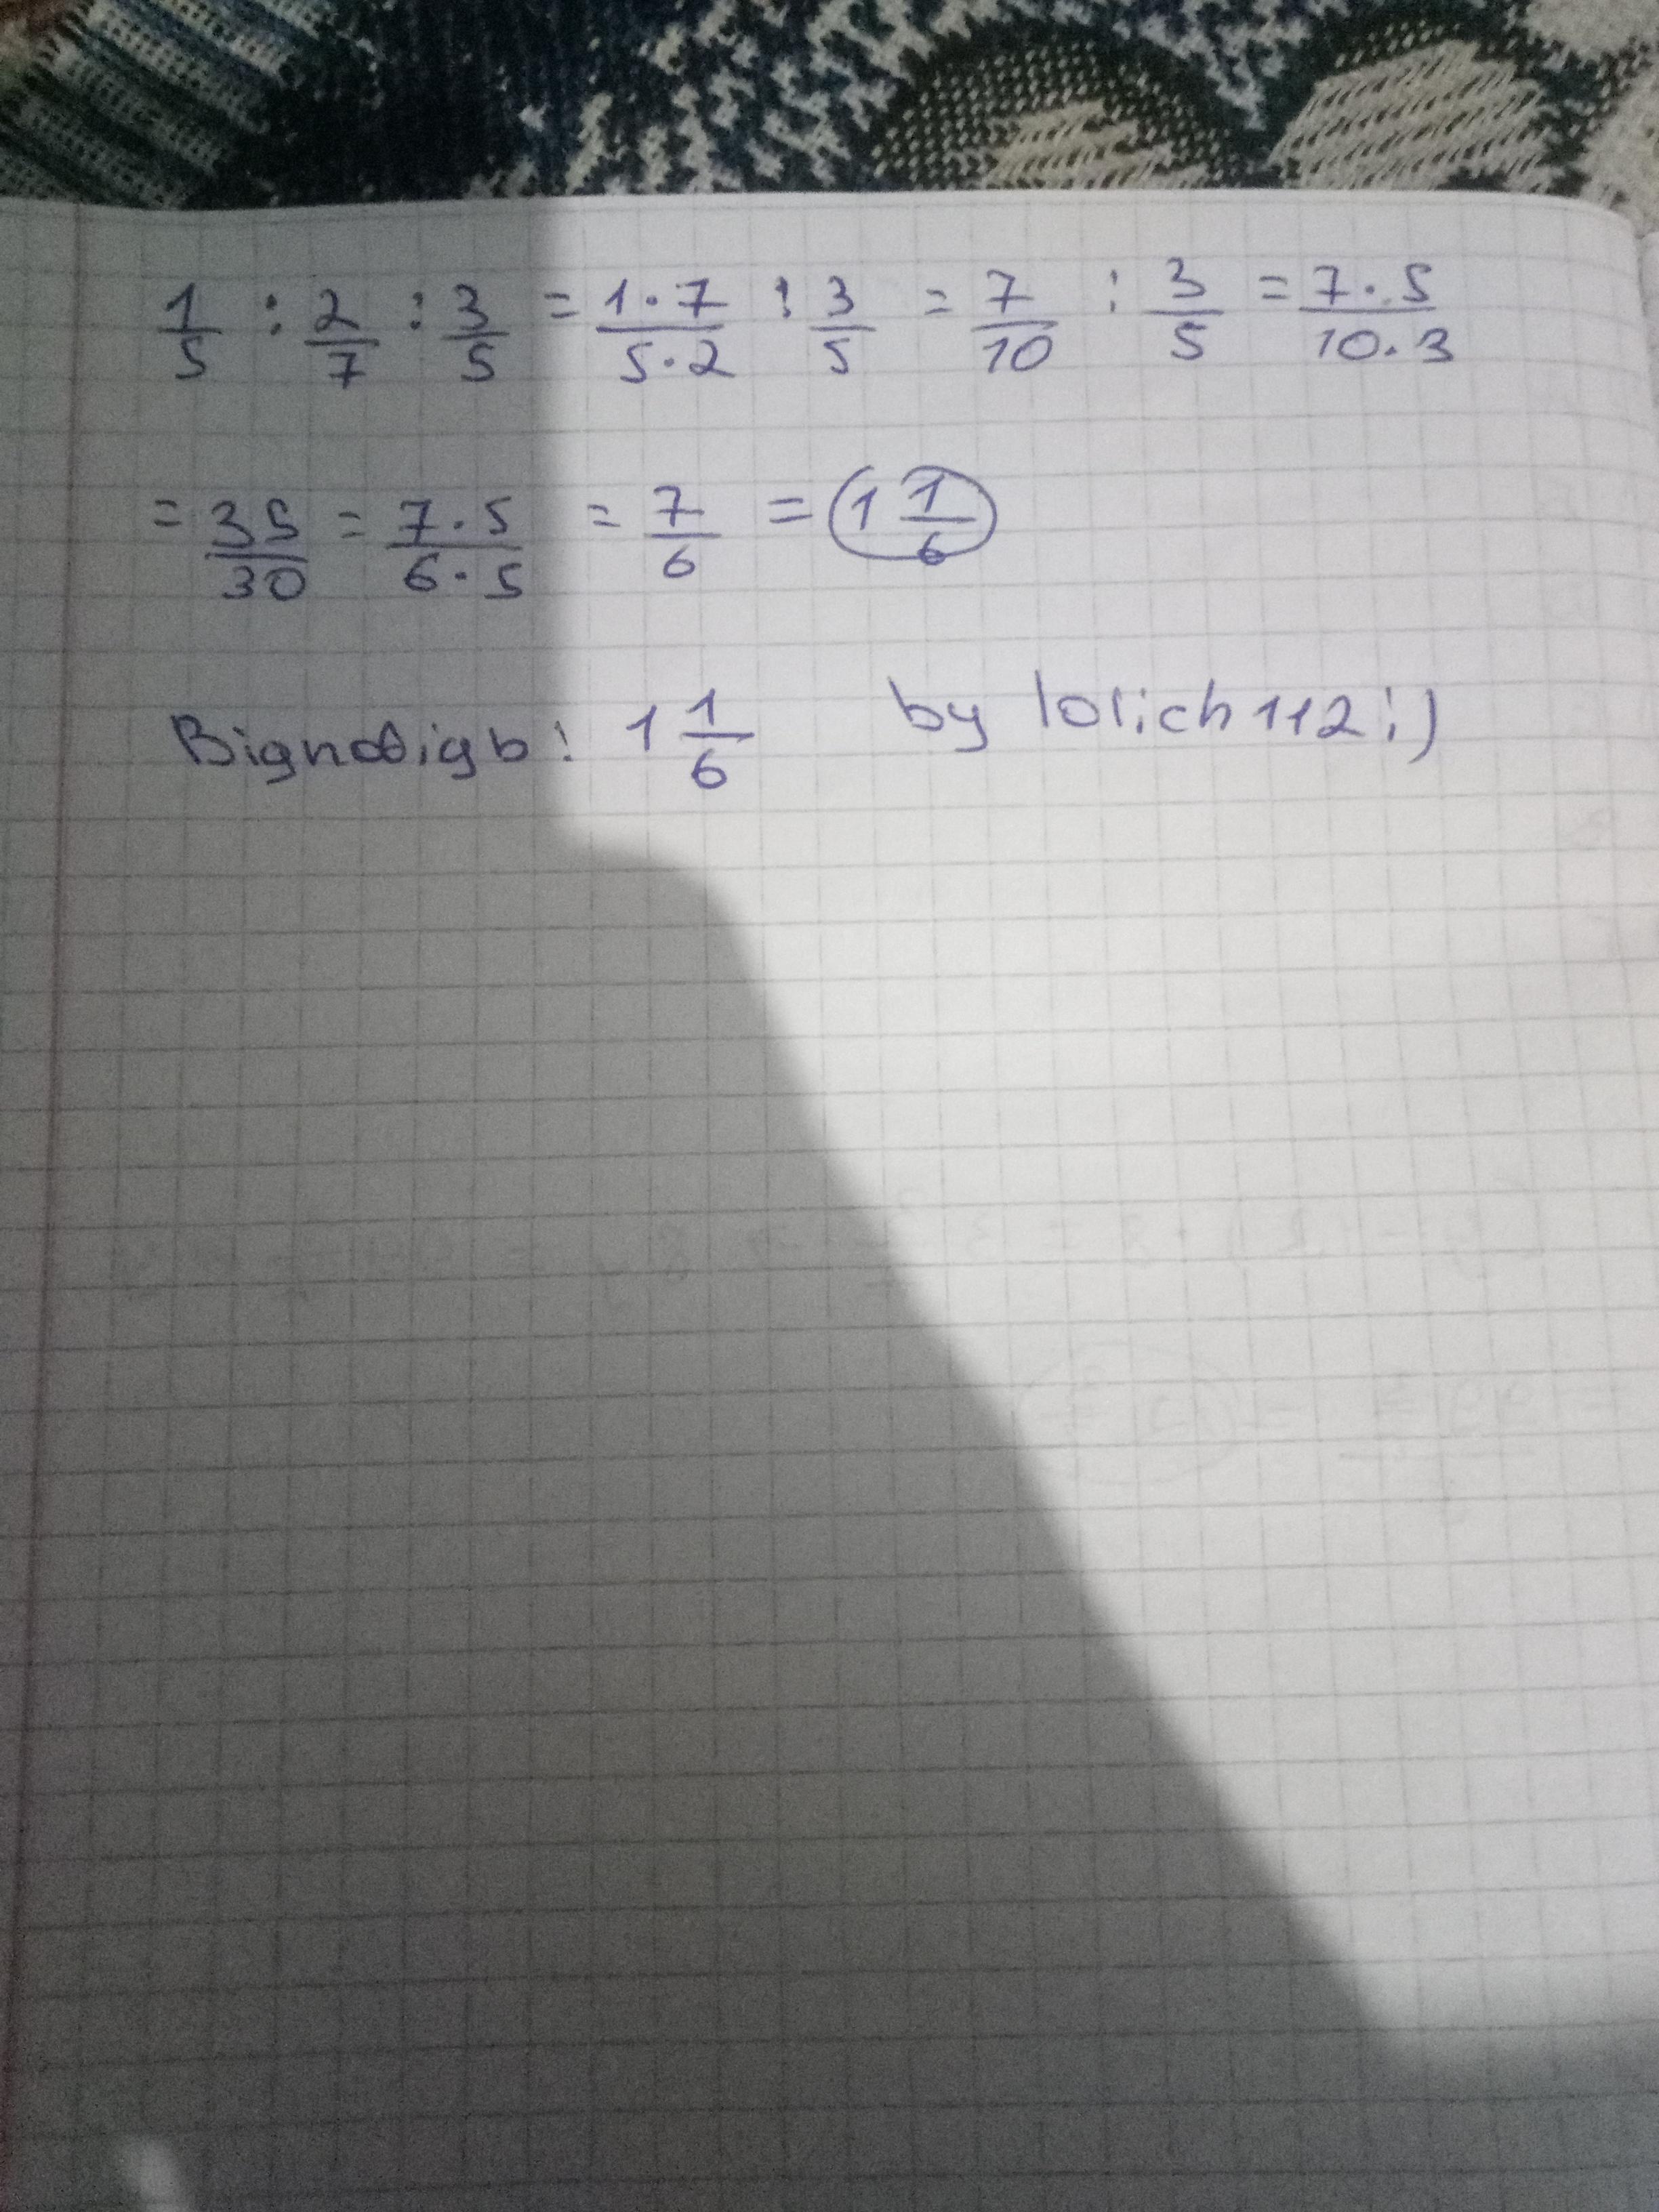 1/5 : 2/7 : 3/5 = 1·7/5·2 : 3/5 = 7/10 : 3/5 = 7·5/10·3
= 35/30 = 7·5/6·5 = 7/6 = 1 1/6
Відповідь: 1 1/6 by lolich112:)